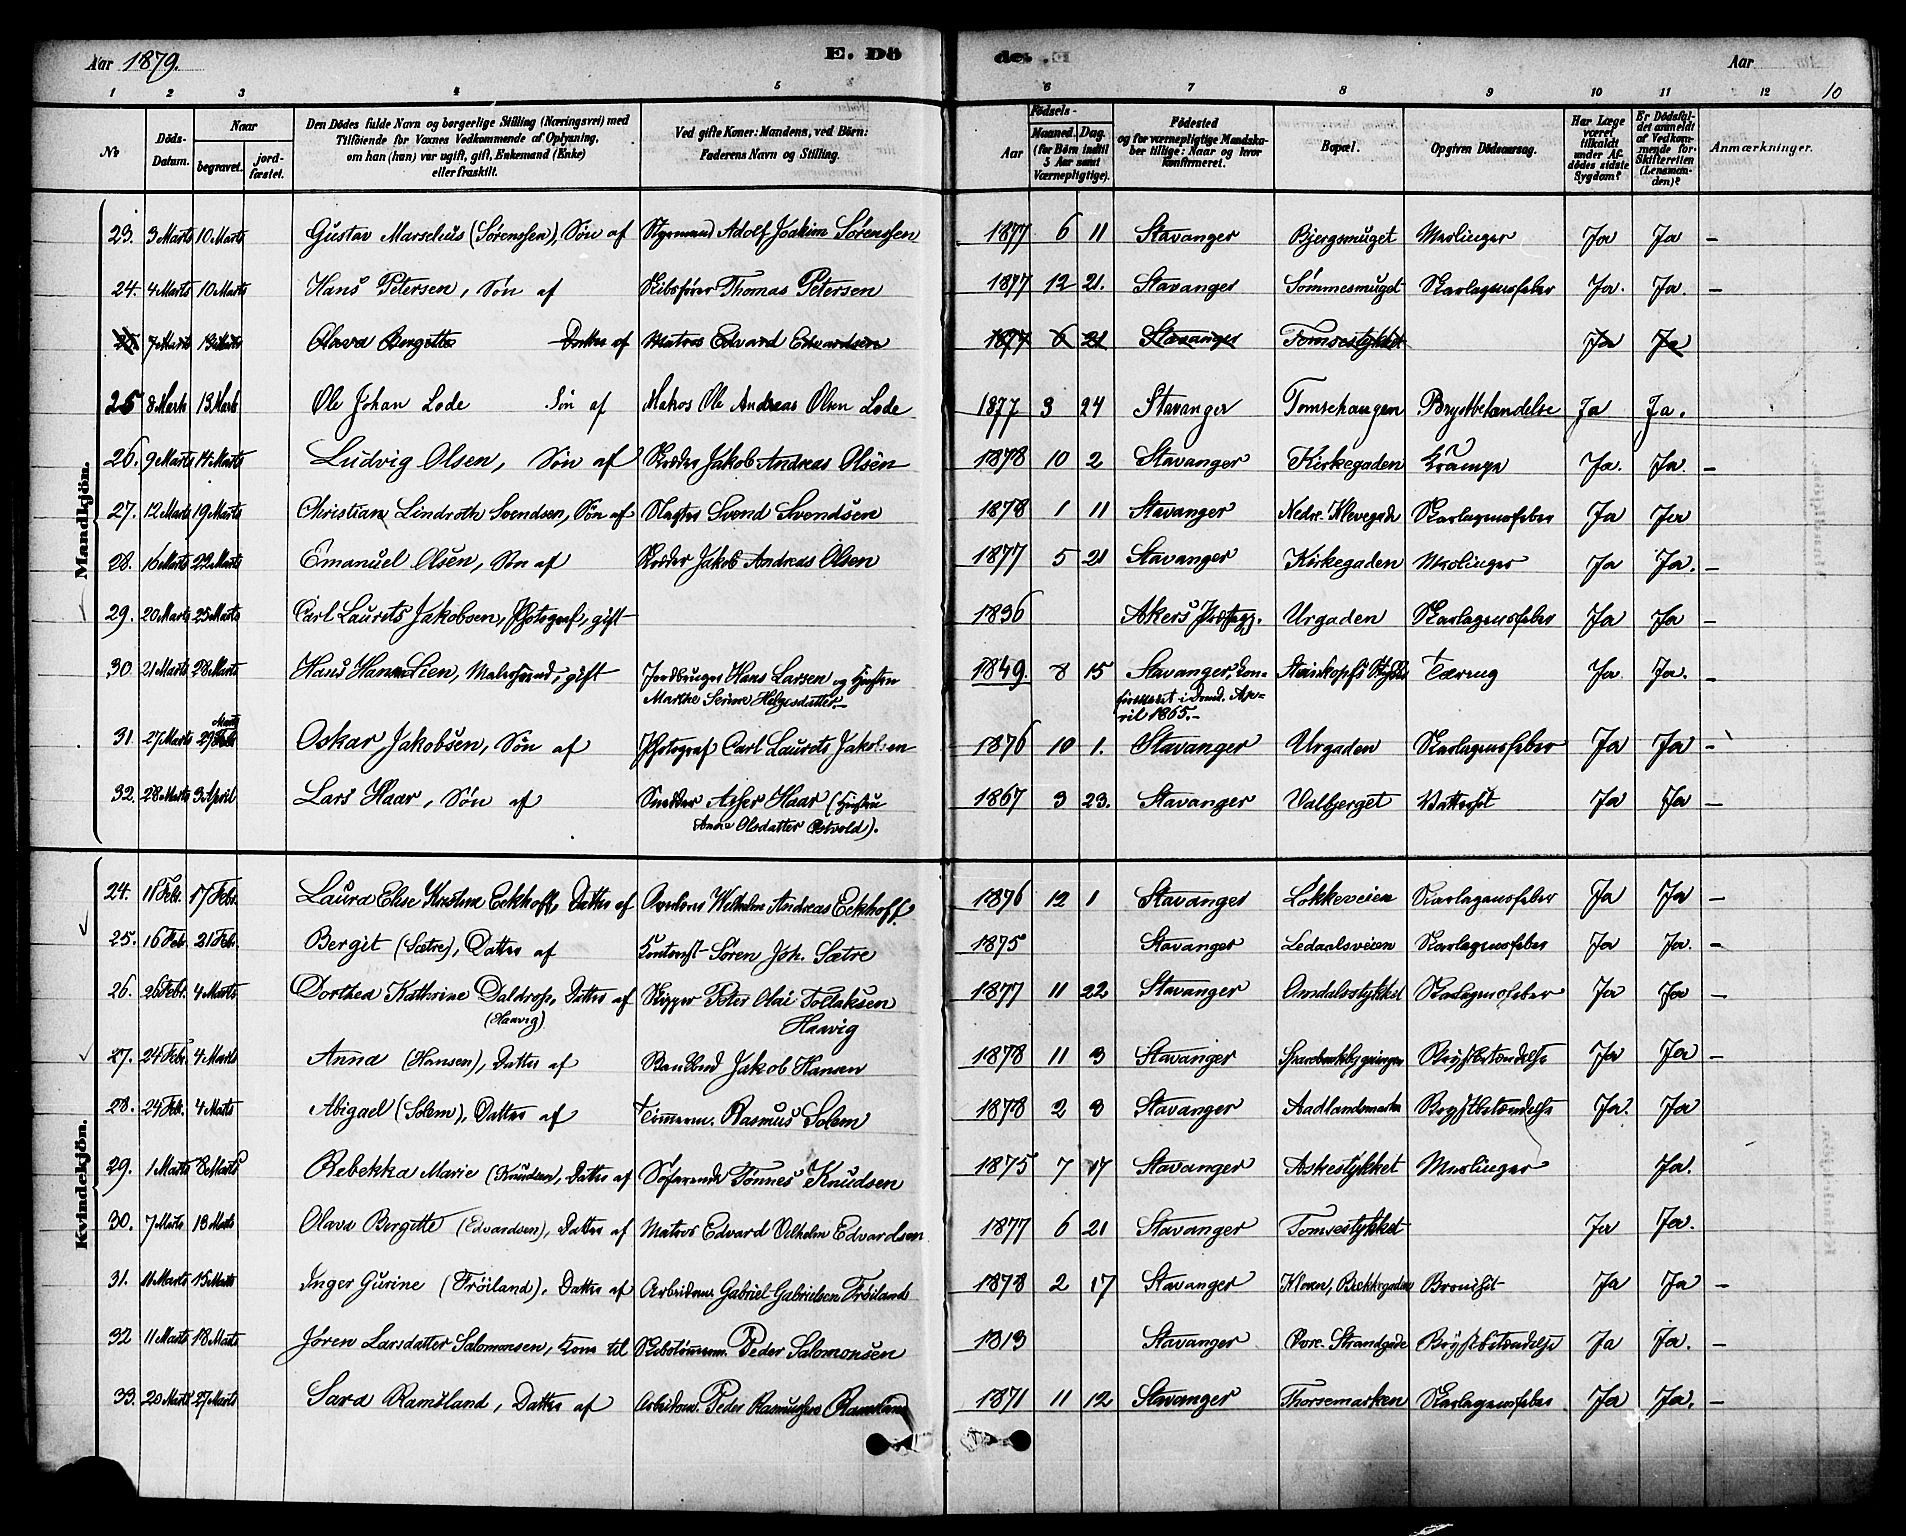 Aar 1879. E. Dö de. Aar 10
1 2 3 4 5 6 7 8 9 10 11 12
No
Döds-Datum.
Naar
begravet.
jord-fæstet.
Den Dödes fulde Navn og borgerlige Stilling (Næringsvei) med
Tilföiende for Voxnes Vedkommende af Oplysning,
om han (hun) var ugift, gift, Enkemand (Enke)
eller fraskilt.
Ved gifte Koner: Mandens, ved Börn:
Faderens Navn og Stilling.
Födsels-
Aar
Maaned. Dag.
(for Börn indtil
5 Aar samt
Værnepligtige).
Födested
og for værnepligtige Mandska-
ber tillige: Naar og hvor
konfirmeret.
Bopæl.
Opgiven Dödsaarsag.
Har Læge
været
tilkaldt
under Af-
dödes sidste
Sygdom?
Er Dödsfal-
det anmeldt
af Vedkom-
mende for
Skifteretten
(Lensman-
den)?
Anmærkninger.
Mandkjön.
23. 3 Marts 10 Marts Gustav Marselius (Sörenssen), Sön af Styrmand Adolf Joakim Sörenssen 1877 6 11 Stavanger Bjergsmuget Meslinger Ja Ja –
24. 4 Marts 10 Marts Hans Petersen, Sön af Skibsförer Thomas Petersen 1877 12 21. Stavanger Sömmesmuget Skarlagensfeber Ja. Ja. –
25 7 Marts 13 Marts Olava Bergitte Datter af Matros Edvard Edvardsen 1877 6 21 Stavanger Tomsestykket Ja Ja
25 8 Marts 13 Marts Ole Johan Lode Sön af Matros Ole Andreas Olsen Lode 1877 3 24 Stavanger Tomsehaugen Brystbetændelse Ja Ja.
26. 9 Marts 14 Marts Ludvig Olsen, Sön af Skrædder Jakob Andreas Olsen 1878 10 2 Stavanger Kirkegaden Krampe Ja. Ja. –
27. 12 Marts 19 Marts Christian Lindroth Svendsen, Sön af Slagter Svend Svendsen 1878 1 11 Stavanger Nedre Klevegade Skarlagensfeber Ja Ja
28. 16 Marts 22 Marts Emanuel Olsen, Sön af Skrædder Jakob Andreas Olsen 1877 5 21 Stavanger Kirkegaden Meslinger Ja Ja. –
29. 20 Marts 25 Marts Carl Laurits Jakobsen, Photograf, gift 1836 Akers Præstegj. Urgaden Skarlagensfeber Ja Ja –
30 21 Marts 28 Marts Hans Hansen Lien, Malersvend, gift Jordbruger Hans Larsen og Hustru 1849. 8 15 Stavanger, Con- Steinkopfs Stykke Tæring Ja Ja. –
Marthe Serine Helgesdatter. firmeret i Domk. Ap-
ril 1865.–
31 27 Marts 29 Marts Oskar Jakobsen, Sön af Photograf Carl Laurits Jakobsen 1876 10 1. Stavanger Urgaden Skarlagensfeber Ja Ja –
32. 28 Marts 3 April Lars Haar, Sön af Snedker Asser Haar (Hustru 1867 3 23. Stavanger Valbjerget Vattersot Ja Ja –
Anne Olsdatter Ostvold).
Kvindekjön.
24. 11 Febr. 17 Febr. Laura Elise Kristine Eckhoff, Datter af Wilhelm Andreas Eckhoff. 1876 12 1 Stavanger Lökkeveien Skarlagensfeber Ja Ja –
25. 16 Feb. 21 Febr. Bergit (Sætre), Datter af Kontorist Sören Joh. Sætre 1875 Stavanger Ledaalsveien Skarlagensfeber Ja Ja. –
26. 26 Febr. 4 Marts Dorthea Kathrine Daldrofs, Datter af Skipper Peter Olai Tollaksen 1877 11 22 Stavanger Omdalsstykket Skarlagensfeber Ja Ja –
(Haavig) Haavig
27. 24 Febr. 4 Marts Anna (Hansen), Datter af Jakob Hansen 1878 11 3 Stavanger Sparebankbygningen Brystbetændelse Ja Ja –
28. 24 Feb. 4 Marts Abigael (Solem), Datter af Tömmerm. Rasmus Solem 1878 2 3 Stavanger Aadlandsmarken Brystbetændelse Ja. Ja
29. 1 Marts 8 Marts Rebekka Marie (Knudsen, Datter af Söfarende Tönnes Knudsen 1875 7 17 Stavanger Askestykket Meslinger Ja.
30. 7 Marts 13 Marts Olava Bergitte (Edvardsen), Datter af Matros Edvard Vilhelm Edvardsen 1877 6 21 Stavanger Tomsestykket Ja Ja.
31. 11 Marts 15 Marts Inger Gurine (Fröiland), Datter af Arbeidsm. Gabriel Gabrielsen Fröiland 1878 2 17 Stavanger Kleven, Bækkegaden Bronchit Ja Ja –
32 11 Marts 18 Marts Jören Larsdatter Salomonsen, Kone til Skibstömmerm. Peder Salomonsen 1813 Stavanger Strandgade Brystbetændelse Ja Ja. –
33. 20 Marts 27 Marts Sara Ramsland, Datter af Arbeidsm. Peder Rasmussen Ramsland 1871 11 12 Stavanger Thorsemarken Skarlagensfeber Ja Ja. –